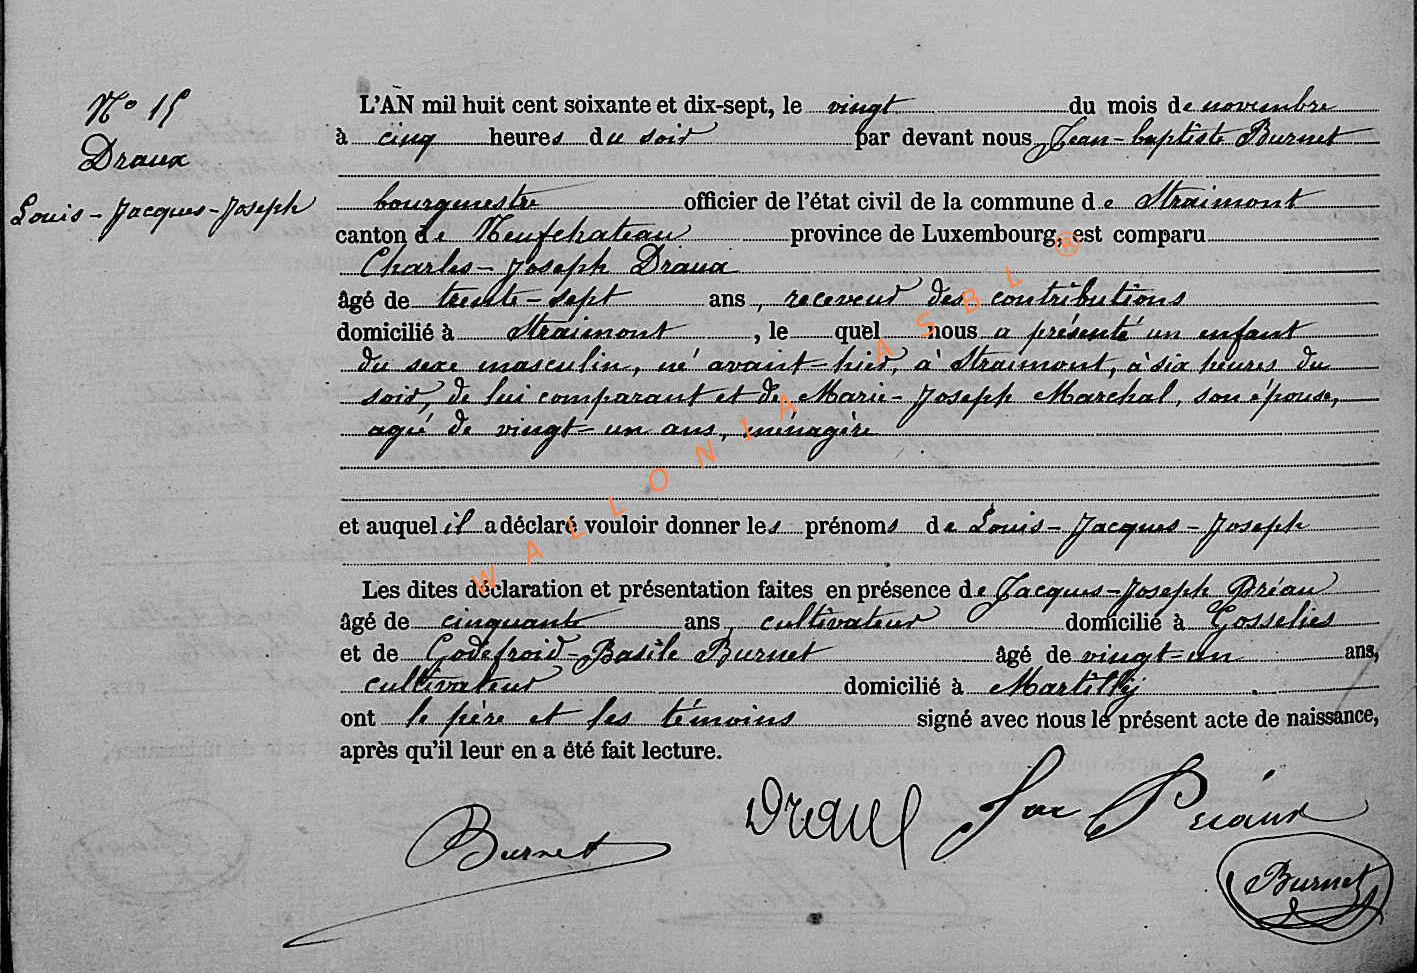 N° 15
Draux
Louis-Jacques-Joseph
L'AN mil huit cent soixante et dix-sept, le vingt du mois de novembre
à cinq heures du soir par devant nous Jean-baptiste Burnet
bourgmestre officier de l'état civil de la commune de Straimont
canton de Neufchateau province de Luxembourg, est comparu
Charles-Joseph Draux
âgé de trente-sept ans, receveur des contributions
domicilié à Straimont, le quel nous a présenté un enfant
du sexe masculin, né avant-hier, à Straimont, à six heures du
soir, de lui comparant et de Marie-Joseph Marchal, son épouse,
agée de vingt-un ans, ménagère
et auquel il a déclaré vouloir donner les prénoms de Louis-Jacques-Joseph
Les dites déclaration et présentation faites en présence de Jacques-Joseph Préau
âgé de cinquante ans, cultivateur domicilié à Gosselies
et de Godefroid-Basile Burnet âgé de vingt-un ans,
cultivateur domicilié à Martilly
ont le père et les témoins signé avec nous le présent acte de naissance,
après qu'il leur en a été fait lecture.
Draux
Burnet
Burnet
WALLONIA ASBL ®